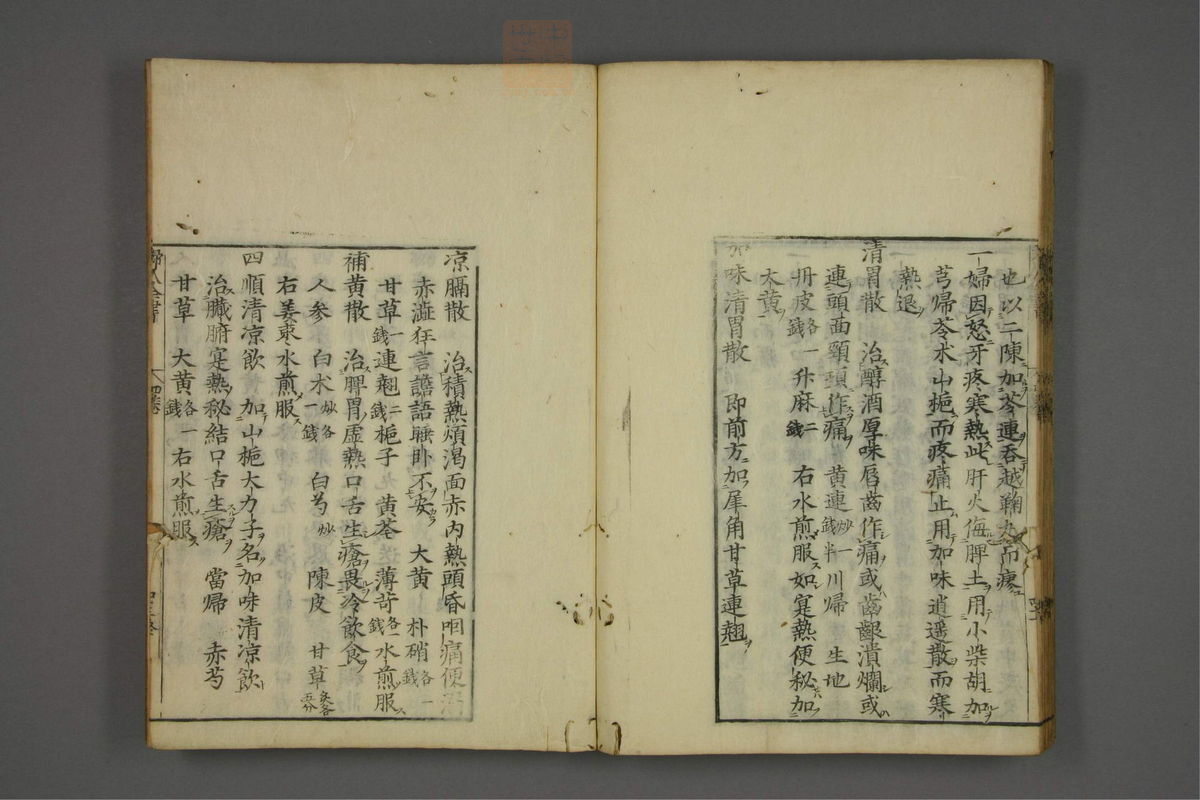 也以二陳加芩連吞越鞠丸而瘳
一婦因怒牙疼寒熱此肝火侮脾土用小柴胡加
芎歸苓朮山梔而疼痛止用加味逍遥散而寒
熱退
清胃散 治醇酒厚味唇齒作痛或齒齦潰爛或
連頭面頸項作痛 黄連炒一錢半川歸 生地
丹皮各一錢升麻二錢 右水煎服如寔熱便秘加
大黄
加味清胃散 即前方加犀角甘草連翹
凉膈散 治積熱煩渴面赤内熱頭昏咽痛便
赤澁狂言譫語睡卧不安 大黄 朴硝各一錢
甘草一錢連翹二錢梔子 黄芩 薄苛各一錢水煎服
補黄散 治脾胃虛熱口舌生瘡畏冷飲食
人参 白朮炒各一錢 白芍炒 陳皮 甘草炙各五分
右姜棗水煎服
四順清凉飲 加山梔大力子名加味清凉飲
治臟腑寔熱秘結口舌生瘡 當歸 赤芍
甘草 大黄各一錢 右水煎服